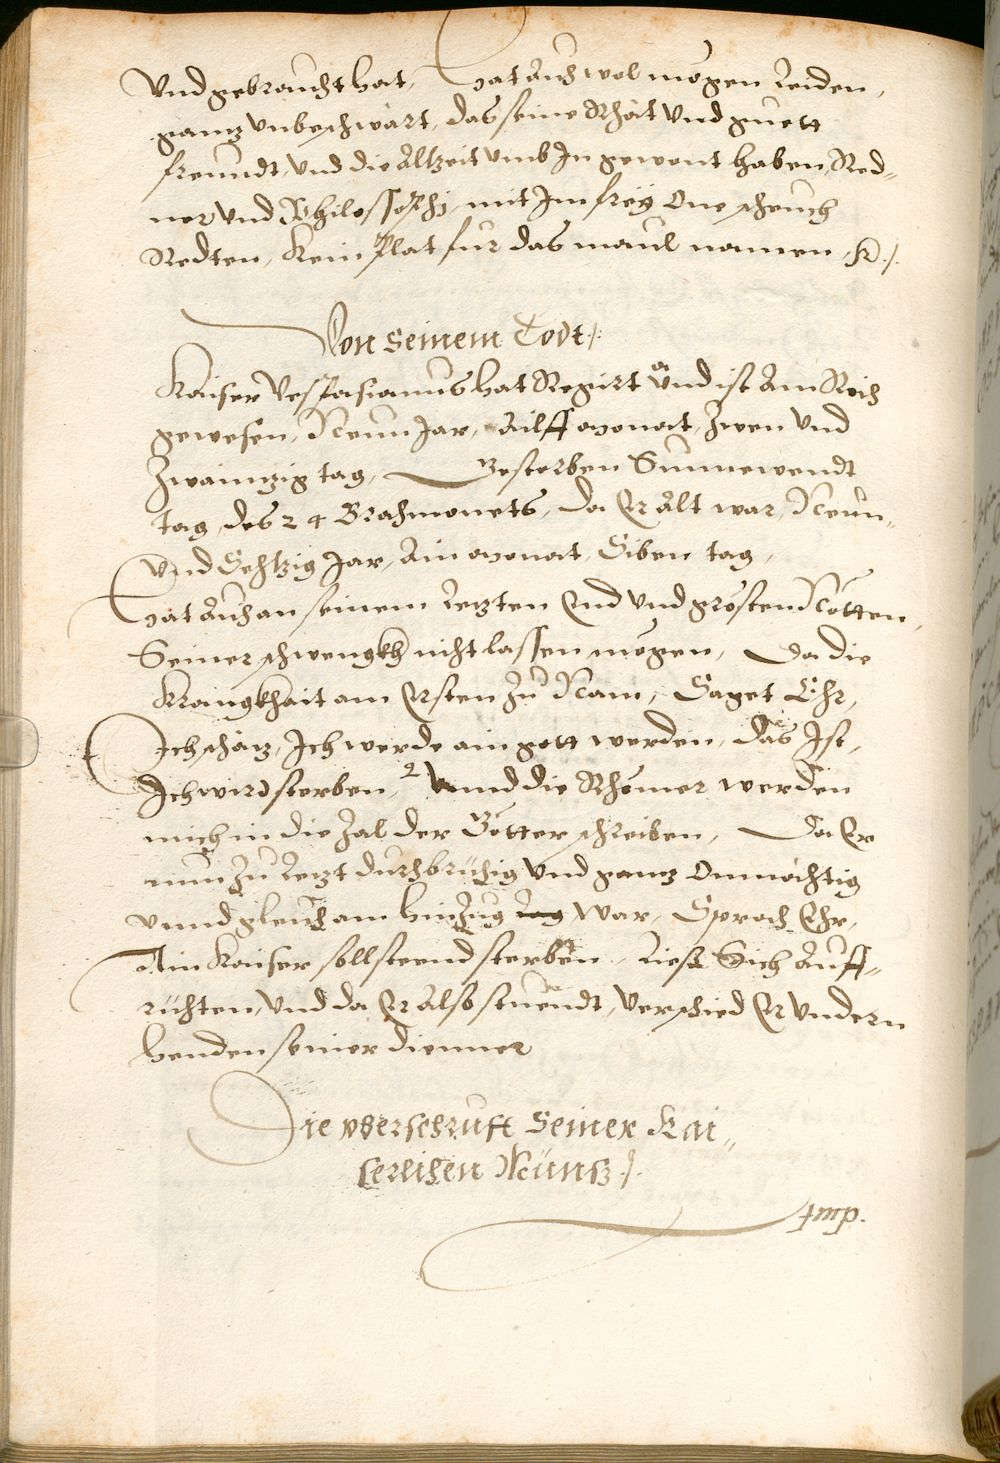 Vnd gebraucht hat, Hat auch wol mögen Leiden,
gantz vnbeschwärt, das seine Rhät vnd guett
freundt, vnd die Altzeit vmb In gewont haben, Red-
ner vnd Philossophj, mit Im freÿ One scheuch
Redten, Kein Plat fur das maul namen,
Von Seinem Todt
Kaiser Vespasianus hat Regirt vnd ist Am Reich
gewesen, Neun Jar, Ailff monat, Zwen vnd
Zwaintzig tag, Gestorben Sunnewendt
tag, des 24 Brachmonets, Da Er Alt war, Neun,,
vnd Sechtzig Jar, Ain monat, Siben tag,
Hat Auch an seinem Letzten End vnd grösten Nötten,
Seiner schwengkh nicht lassen mögen, Da die
Krangkhait am Ersten Zu Nam, Saget Ehr,
Ich schätz, Ich werde ain gott werden, das Ist,
Ich wird sterben, Vnnd die Rhömer werden
mich in die Zal der Götter schreiben, Da Er
nun Zu Letzt durchbrüchig vnd gantz Onmächtig
vnnd gleich am hinzug Lag War, Sprach Ehr,
Ain Kaiser soll steend sterben, Liess Sich Auff,,
richten, Vnd da Er Also stuendt, Verschied Er Vndern
henden seiner dienner
Die vberschrift Seiner Kai,,
serlichen Müntz.
Imp.